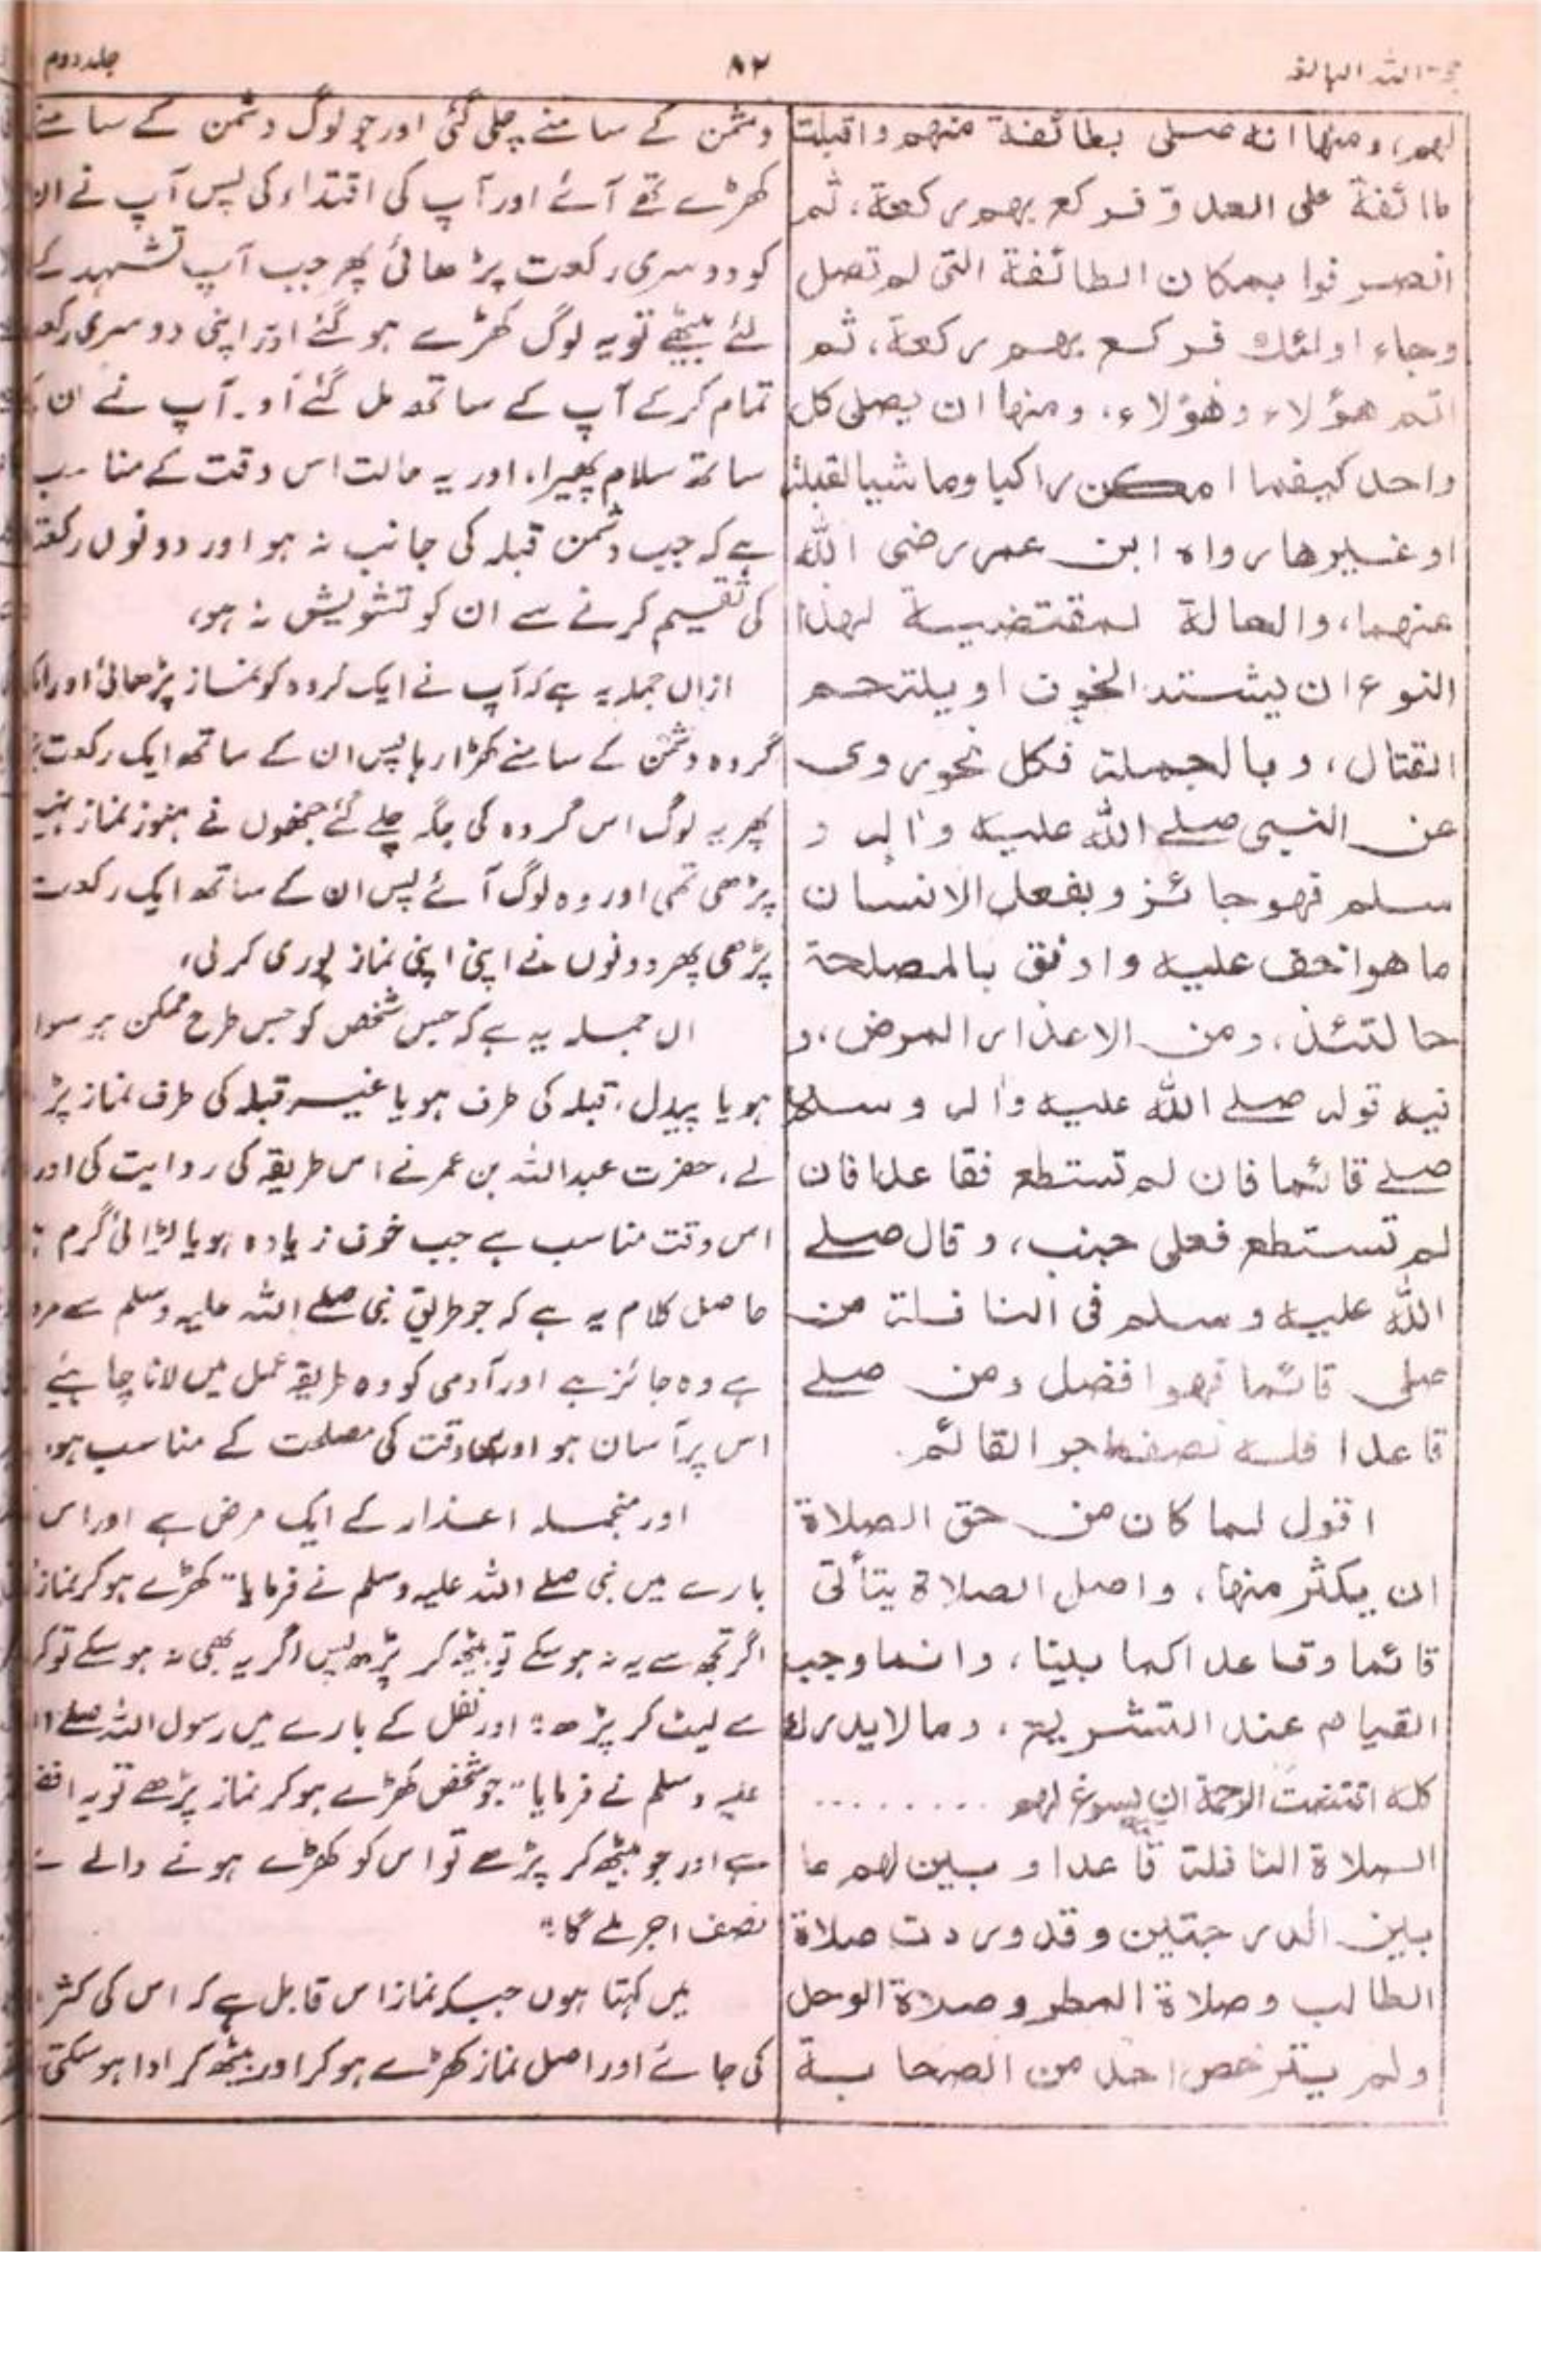 حجۃ اللہ البالغہ
۸۲
جلد دوم
لهم، ومنها انه صلى بطائفة منهم واقبلت
طائفة على العدو فركع بهم ركعة، ثم
انصرفوا بمكان الطائفة التى لم تصل
وجاء اولئك فركع بهم ركعة، ثم
اتم هؤلاء وهؤلاء، ومنها ان يصلى كل
واحد كيفما امكن راكبا وماشيا لقبلة
او غيرها رواه ابن عمر رضى الله
عنهما، والحالة المقتضية لهذا
النوع ان يشتد الخوف او يلتحم
القتال، وبالجملة فكل نحو روى
عن النبى صلے الله عليه واله و
سلم فهو جائز ويفعل الانسان
ما هو اخف عليه واوفق بالمصلحة
حالتئذ، ومن الاعذار المرض، و
فيه قوله صلے الله عليه واله وسلم
صلے قائما فان لم تستطع فقاعدا فان
لم تستطع فعلى جنب، وقال صلے
الله عليه وسلم فى النافلة من
صلى قائما فهو افضل ومن صلے
قاعدا فله نصف اجر القائم.
اقول لما كان من حق الصلاة
ان يكثر منها، واصل الصلاة يتأتى
قائما وقاعدا كما بينا، وانما وجب
القيام عند التشريع، وما لا يدرك
كله اقتضت الرحمة ان يسوغ لهم .........
الصلاة النافلة قاعدا وبين لهم ما
بين الدرجتين وقد وردت صلاة
الطالب وصلاة المطر وصلاة الوحل
ولم يترخص احد من الصحابة
دشمن کے سامنے چلی گئی اور جو لوگ دشمن کے سامنے
کھڑے تھے آئے اور آپ کی اقتداء کی پس آپ نے ان
کو دوسری رکعت پڑھائی پھر جب آپ تشہد کے
لئے بیٹھے تو یہ لوگ کھڑے ہو گئے اور اپنی دوسری
تمام کر کے آپ کے ساتھ مل گئے اور آپ نے ان
ساتھ سلام پھیرا، اور یہ حالت اس وقت کے مناسب
ہے کہ جب دشمن قبلہ کی جانب نہ ہو اور دونوں
کی تقسیم کرنے سے ان کو تشویش نہ ہو،
ازاں جملہ یہ ہے کہ آپ نے ایک گروہ کو نماز پڑھائی اور
گروہ دشمن کے سامنے کھڑا رہا پس ان کے ساتھ ایک رکعت
پھر یہ لوگ اس گروہ کی جگہ چلے گئے جنھوں نے ہنوز نماز
پڑھی تھی اور وہ لوگ آئے پس ان کے ساتھ ایک رکعت
پڑھی پھر دونوں نے اپنی اپنی نماز پوری کر لی،
ال جملہ یہ ہے کہ جس شخص کو جس طرح ممکن ہو سوا
ہو یا پیدل، قبلہ کی طرف ہو یا غیر قبلہ کی طرف نماز پڑ
لے، حضرت عبد اللہ بن عمر نے اس طریقہ کی روایت کی اور
اس وقت مناسب ہے جب خوف زیادہ ہو یا لڑائی گرم
حاصل کلام یہ ہے کہ جو طریق نبی صلے اللہ علیہ وسلم سے
ہے وہ جائز ہے اور آدمی کو وہ طریقہ عمل میں لانا چاہئے
اس پر آسان ہو اور اس وقت کی مصلحت کے مناسب ہو،
اور منجملہ اعذار کے ایک مرض ہے اور اس
بارے میں نبی صلے اللہ علیہ وسلم نے فرمایا "کھڑے ہو کر نماز
اگر تجھ سے یہ نہ ہو سکے تو بیٹھ کر پڑھ پس اگر یہ بھی نہ ہو سکے تو
سے لیٹ کر پڑھ" اور نفل کے بارے میں رسول اللہ صلے
علیہ وسلم نے فرمایا "جو شخص کھڑے ہو کر نماز پڑھے تو یہ
ہے اور جو بیٹھ کر پڑھے تو اس کو کھڑے ہونے والے
نصف اجر ملے گا"
میں کہتا ہوں جبکہ نماز اس قابل ہے کہ اس کی
کی جائے اور اصل نماز کھڑے ہو کر اور بیٹھ کر ادا ہو سکتی